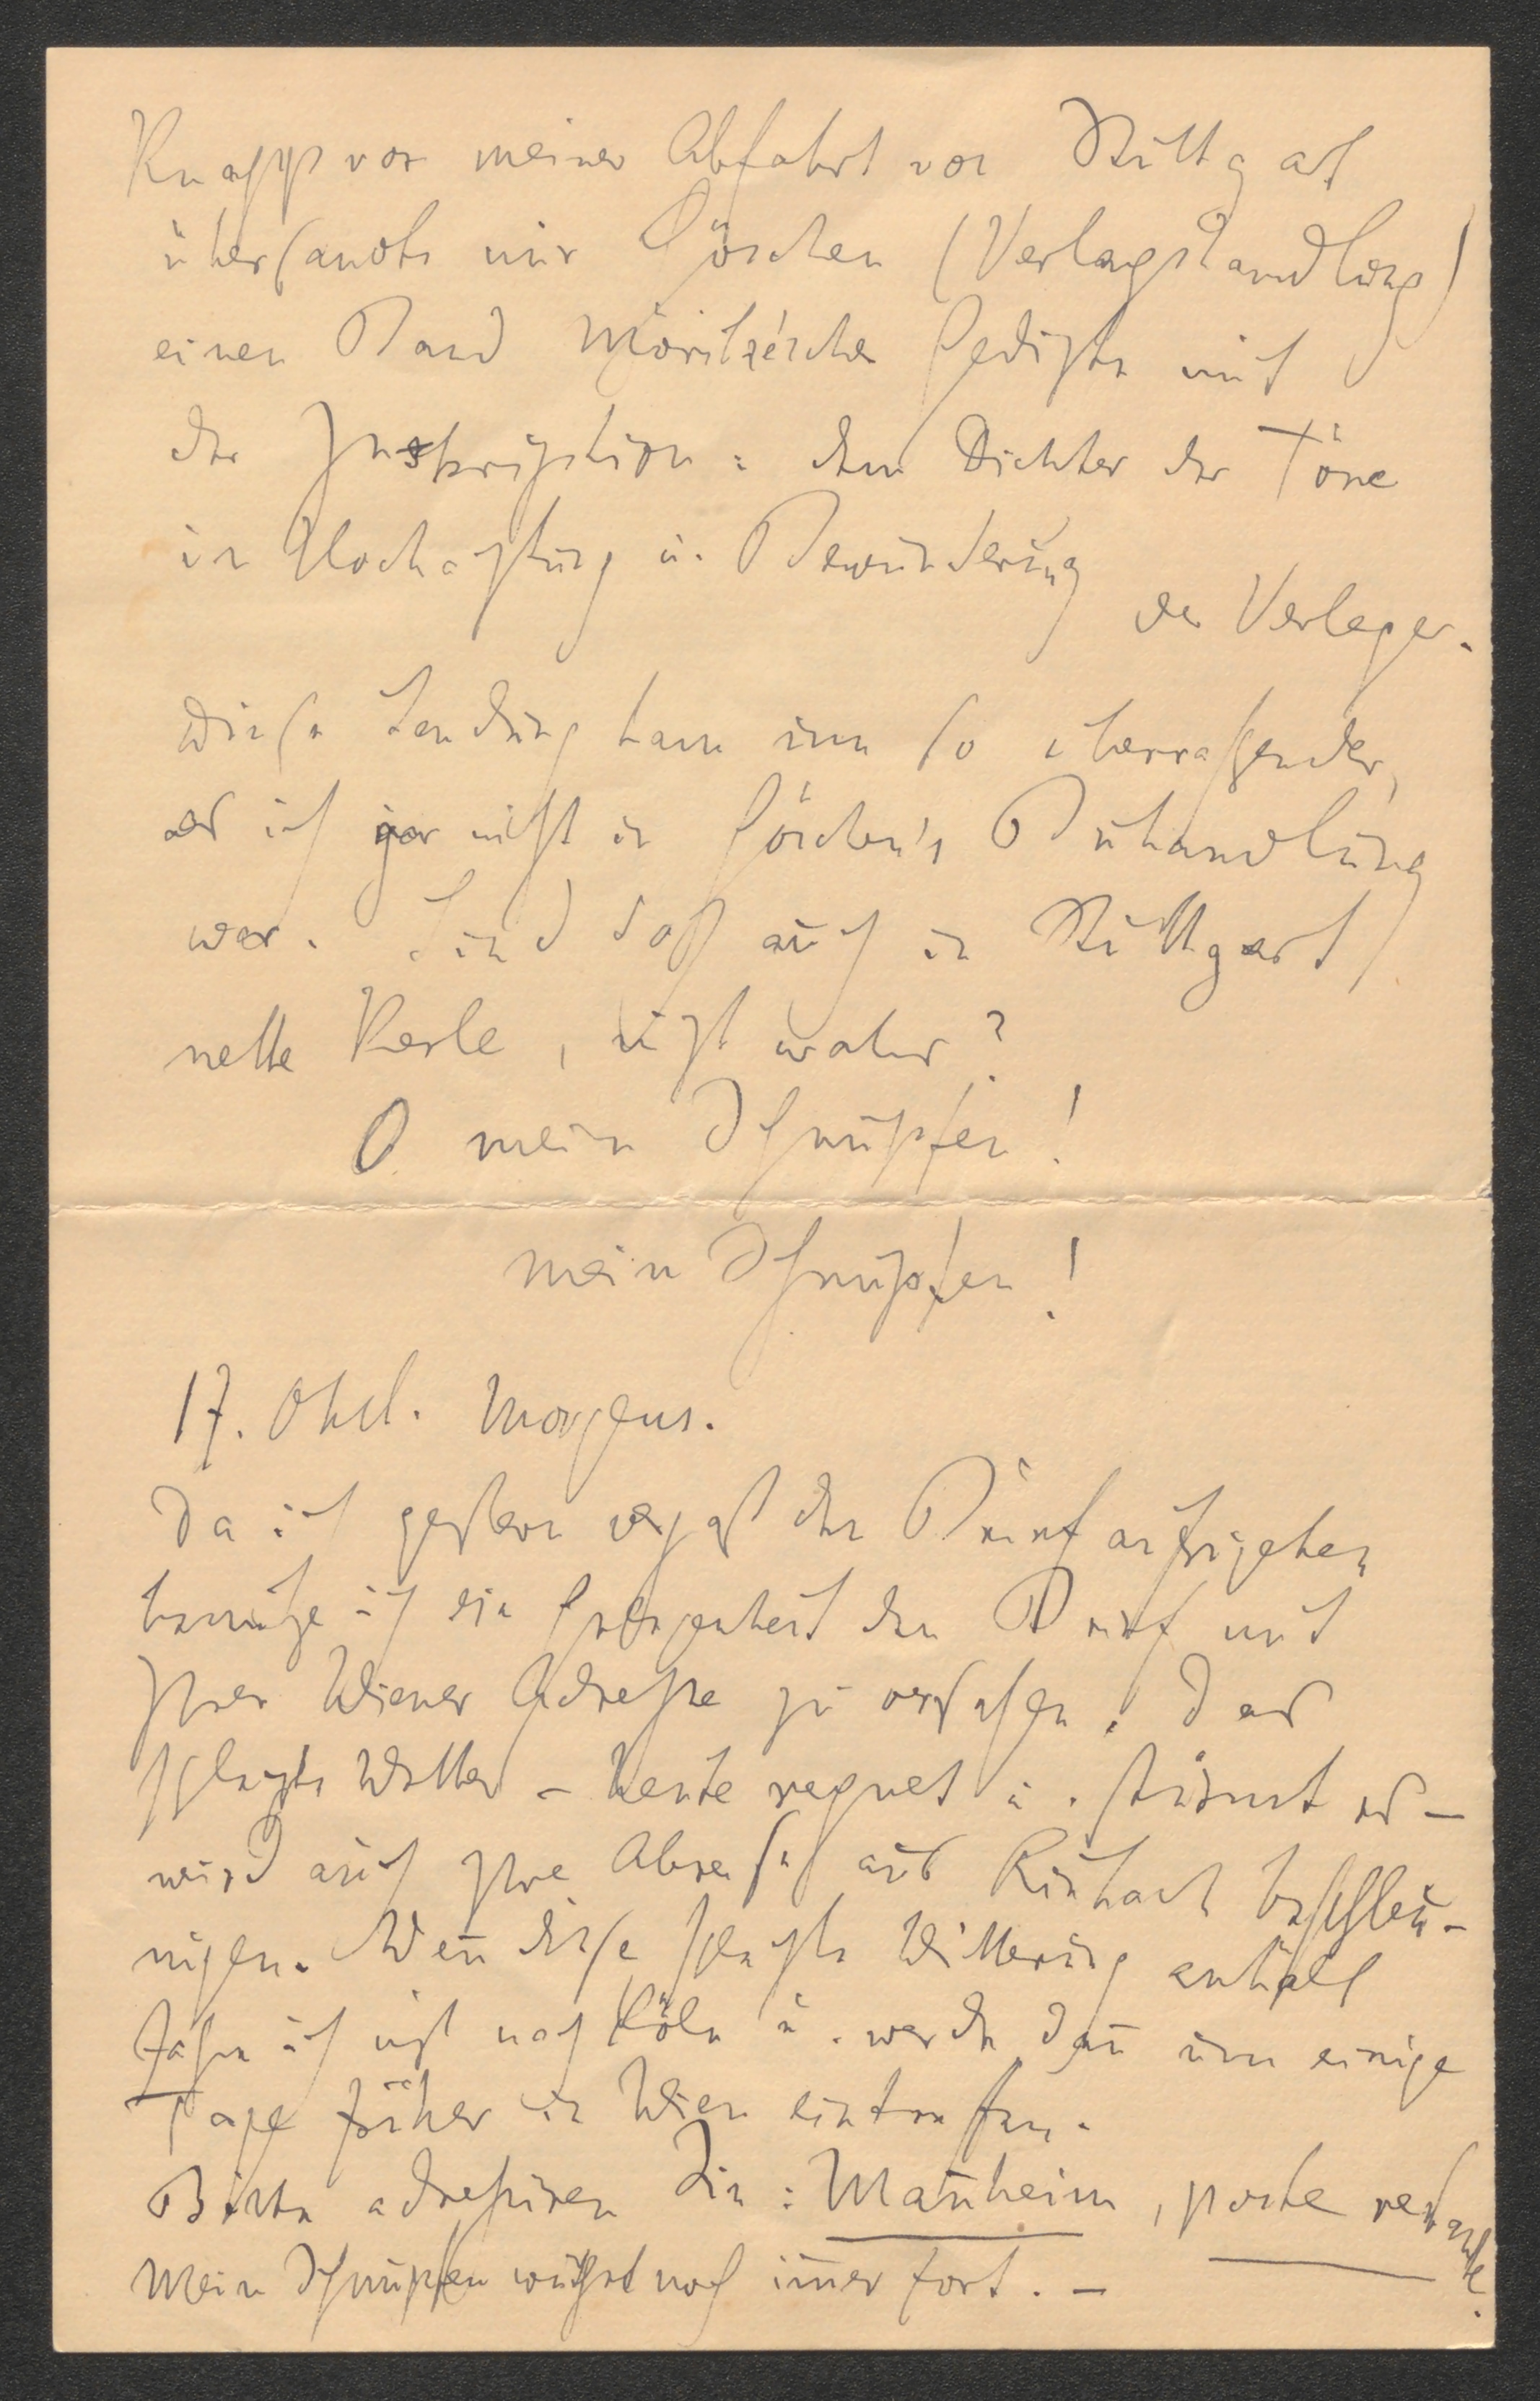 Knapp vor meiner Abfahrt von Stuttgart
übersandte mir Göschen (Verlagshandlung)
einen Band Mörike'scher Gedichte mit
der Inskription: dem Dichter der Töne
in Hochachtung u. Bewunderung
der Verleger.
Diese Sendung kam um so überraschender,
als ich gar nicht in Göschen's Buchandlung
war. Sind doch auch in Stuttgart
nette Kerle, nicht wahr?
O mein Schnupfen!
mein Schnupfen!
17. Okt. Morgens.
Da ich gestern vergaß den Brief aufzugeben
benutze ich die Gelegenheit den Brief mit
Ihrer Wiener Adresse zu versehen. Das
schlechte Wetter – heute regnet u. stürmt es –
wird auch Ihre Abreise aus Rinbach beschleu-
nigen. Weñ diese schlechte Witterung anhält
fahre ich nicht nach Köln u. werde dañ um einige
Tage früher in Wien eintreffen.
Bitte adressiren Sie: Mañheim, poste restante.
Mein Schnupfen wüthet noch im̃er fort. –